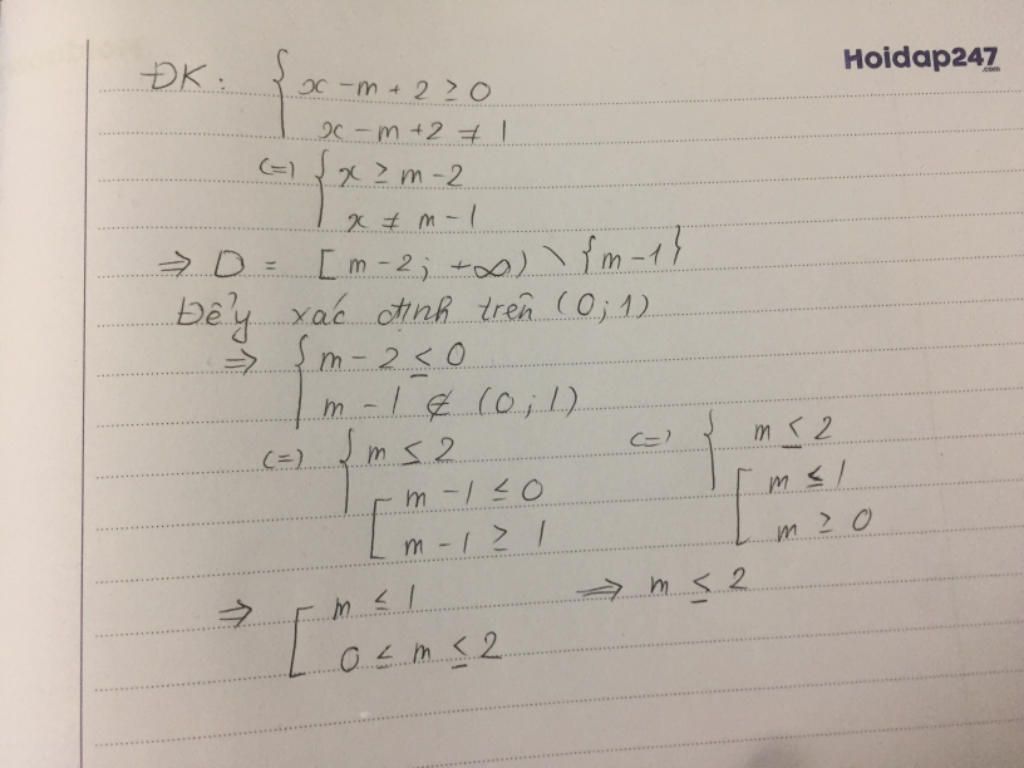 Hoidap247
.com
ĐK: { x - m + 2 ≥ 0
x - m + 2 ≠ 1
(=) { x ≥ m - 2
x ≠ m - 1
⇒ D = [m - 2; +∞) \ {m - 1}
Để y xác định trên (0; 1)
⇒ { m - 2 ≤ 0
m - 1 ∉ (0; 1)
(=) { m ≤ 2
[ m - 1 ≤ 0
m - 1 ≥ 1
(=) { m ≤ 2
[ m ≤ 1
m ≥ 0
⇒ [ m ≤ 1
0 ≤ m ≤ 2
⇒ m ≤ 2